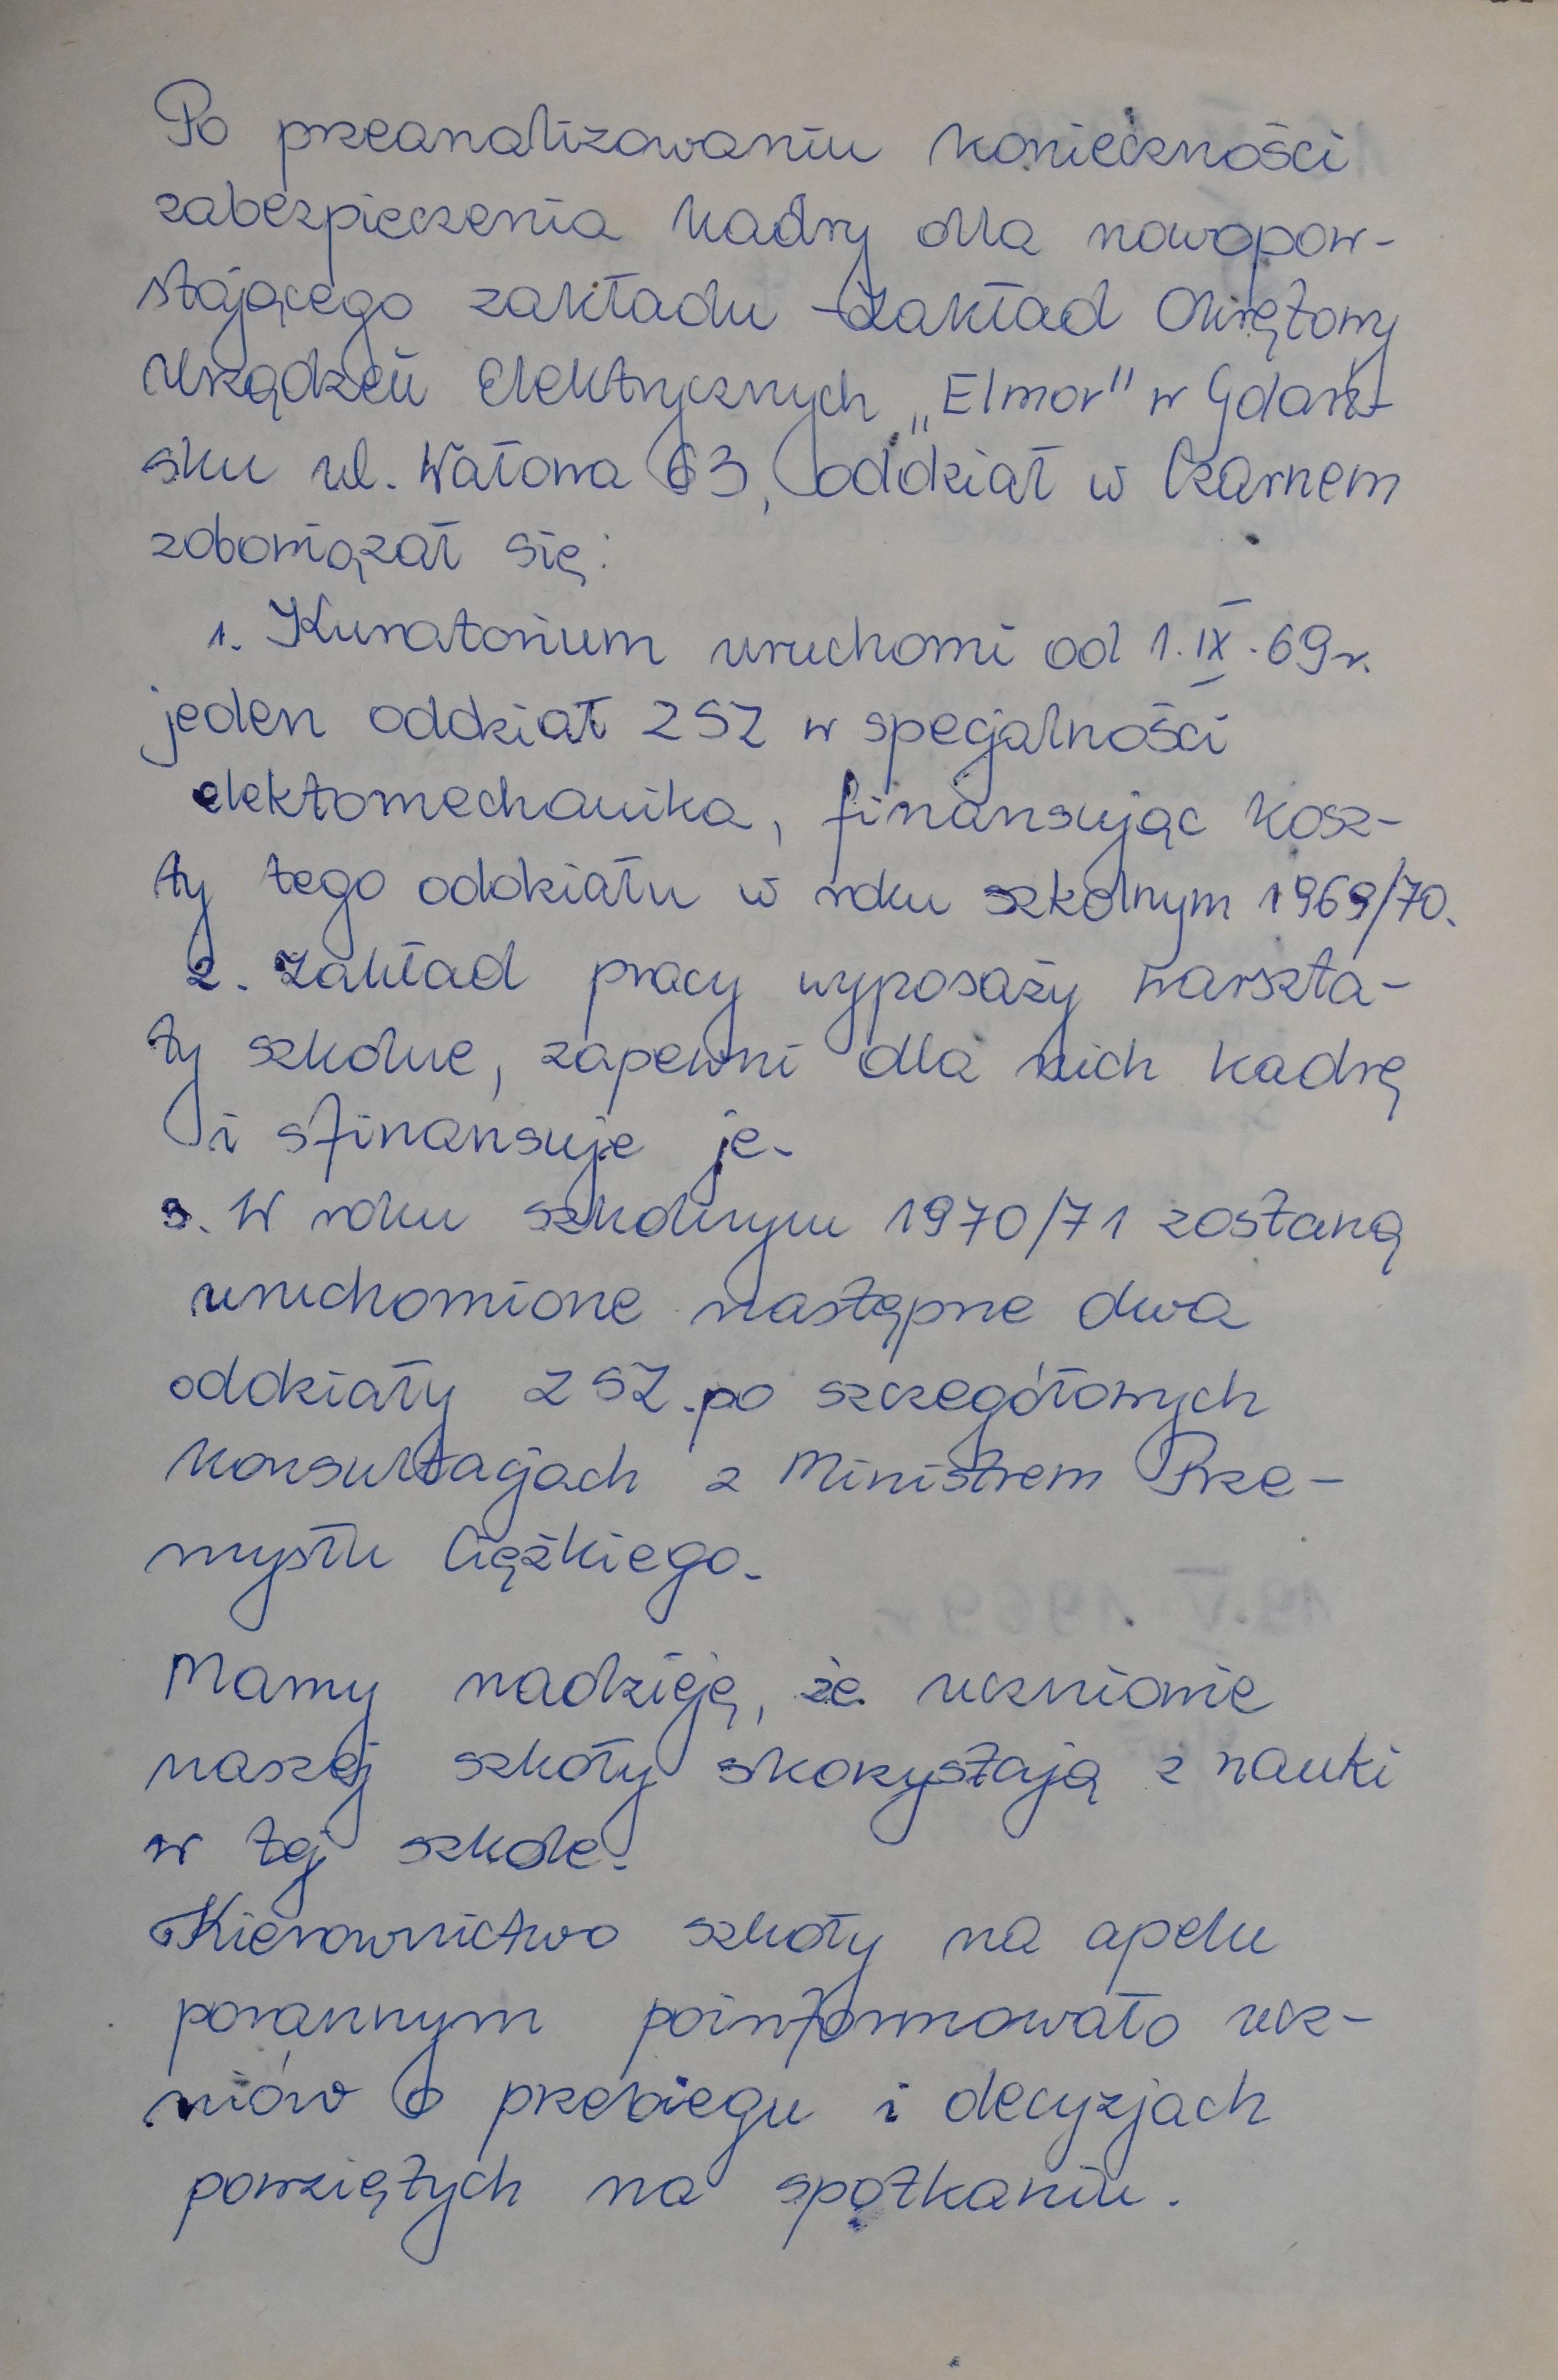 Po przeanalizowaniu konieczności
zabezpieczenia kadry dla nowopow-
stającego zakładu - Zakład Okrętowy
Urządzeń Elektrycznych „Elmor" w Gdań-
sku ul. Wałowa 63, oddział w Czarnem
zobowiązał się:
1. Kuratorium uruchomi od 1.IX.69r.
jeden oddział ZSZ w specjalności
elektomechanika, finansując kosz-
ty tego oddziału w roku szkolnym 1969/70.
2. Zakład pracy wyposaży warszta-
ty szkolne, zapewni dla nich kadrę
i sfinansuje je.
3. W roku szkolnym 1970/71 zostaną
uruchomione następne dwa
oddziały ZSZ.po szczegółowych
konsultacjach z Ministrem Prze-
mysłu Ciężkiego.
Mamy nadzieję, że uczniowie
naszej szkoły skorzystają z nauki
w tej szkole.
Kierownictwo szkoły na apelu
porannym poinformowało ucz-
niów o przebiegu i decyzjach
powziętych na spotkaniu.